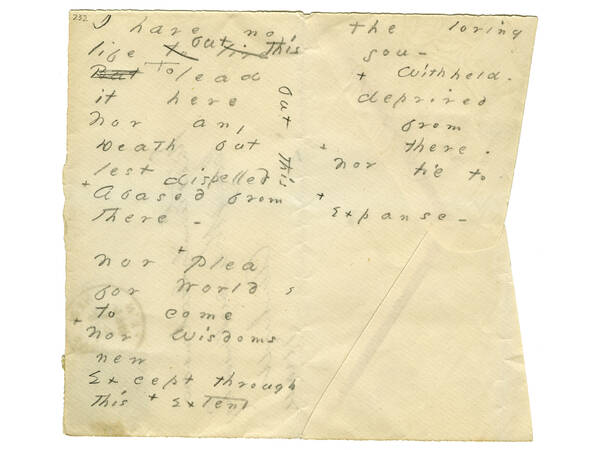 232
I have no
life to live but this
But To lead
it here
Nor any
Death but
lest dispelled
+ Abased from
there –
but this
Nor + Plea
for World s
to come
+ Nor Wisdoms
new
Except through
this + Extent
the loving
you –
+ Withheld –
deprived
from
+ there –
nor tie to
+
Expanse –